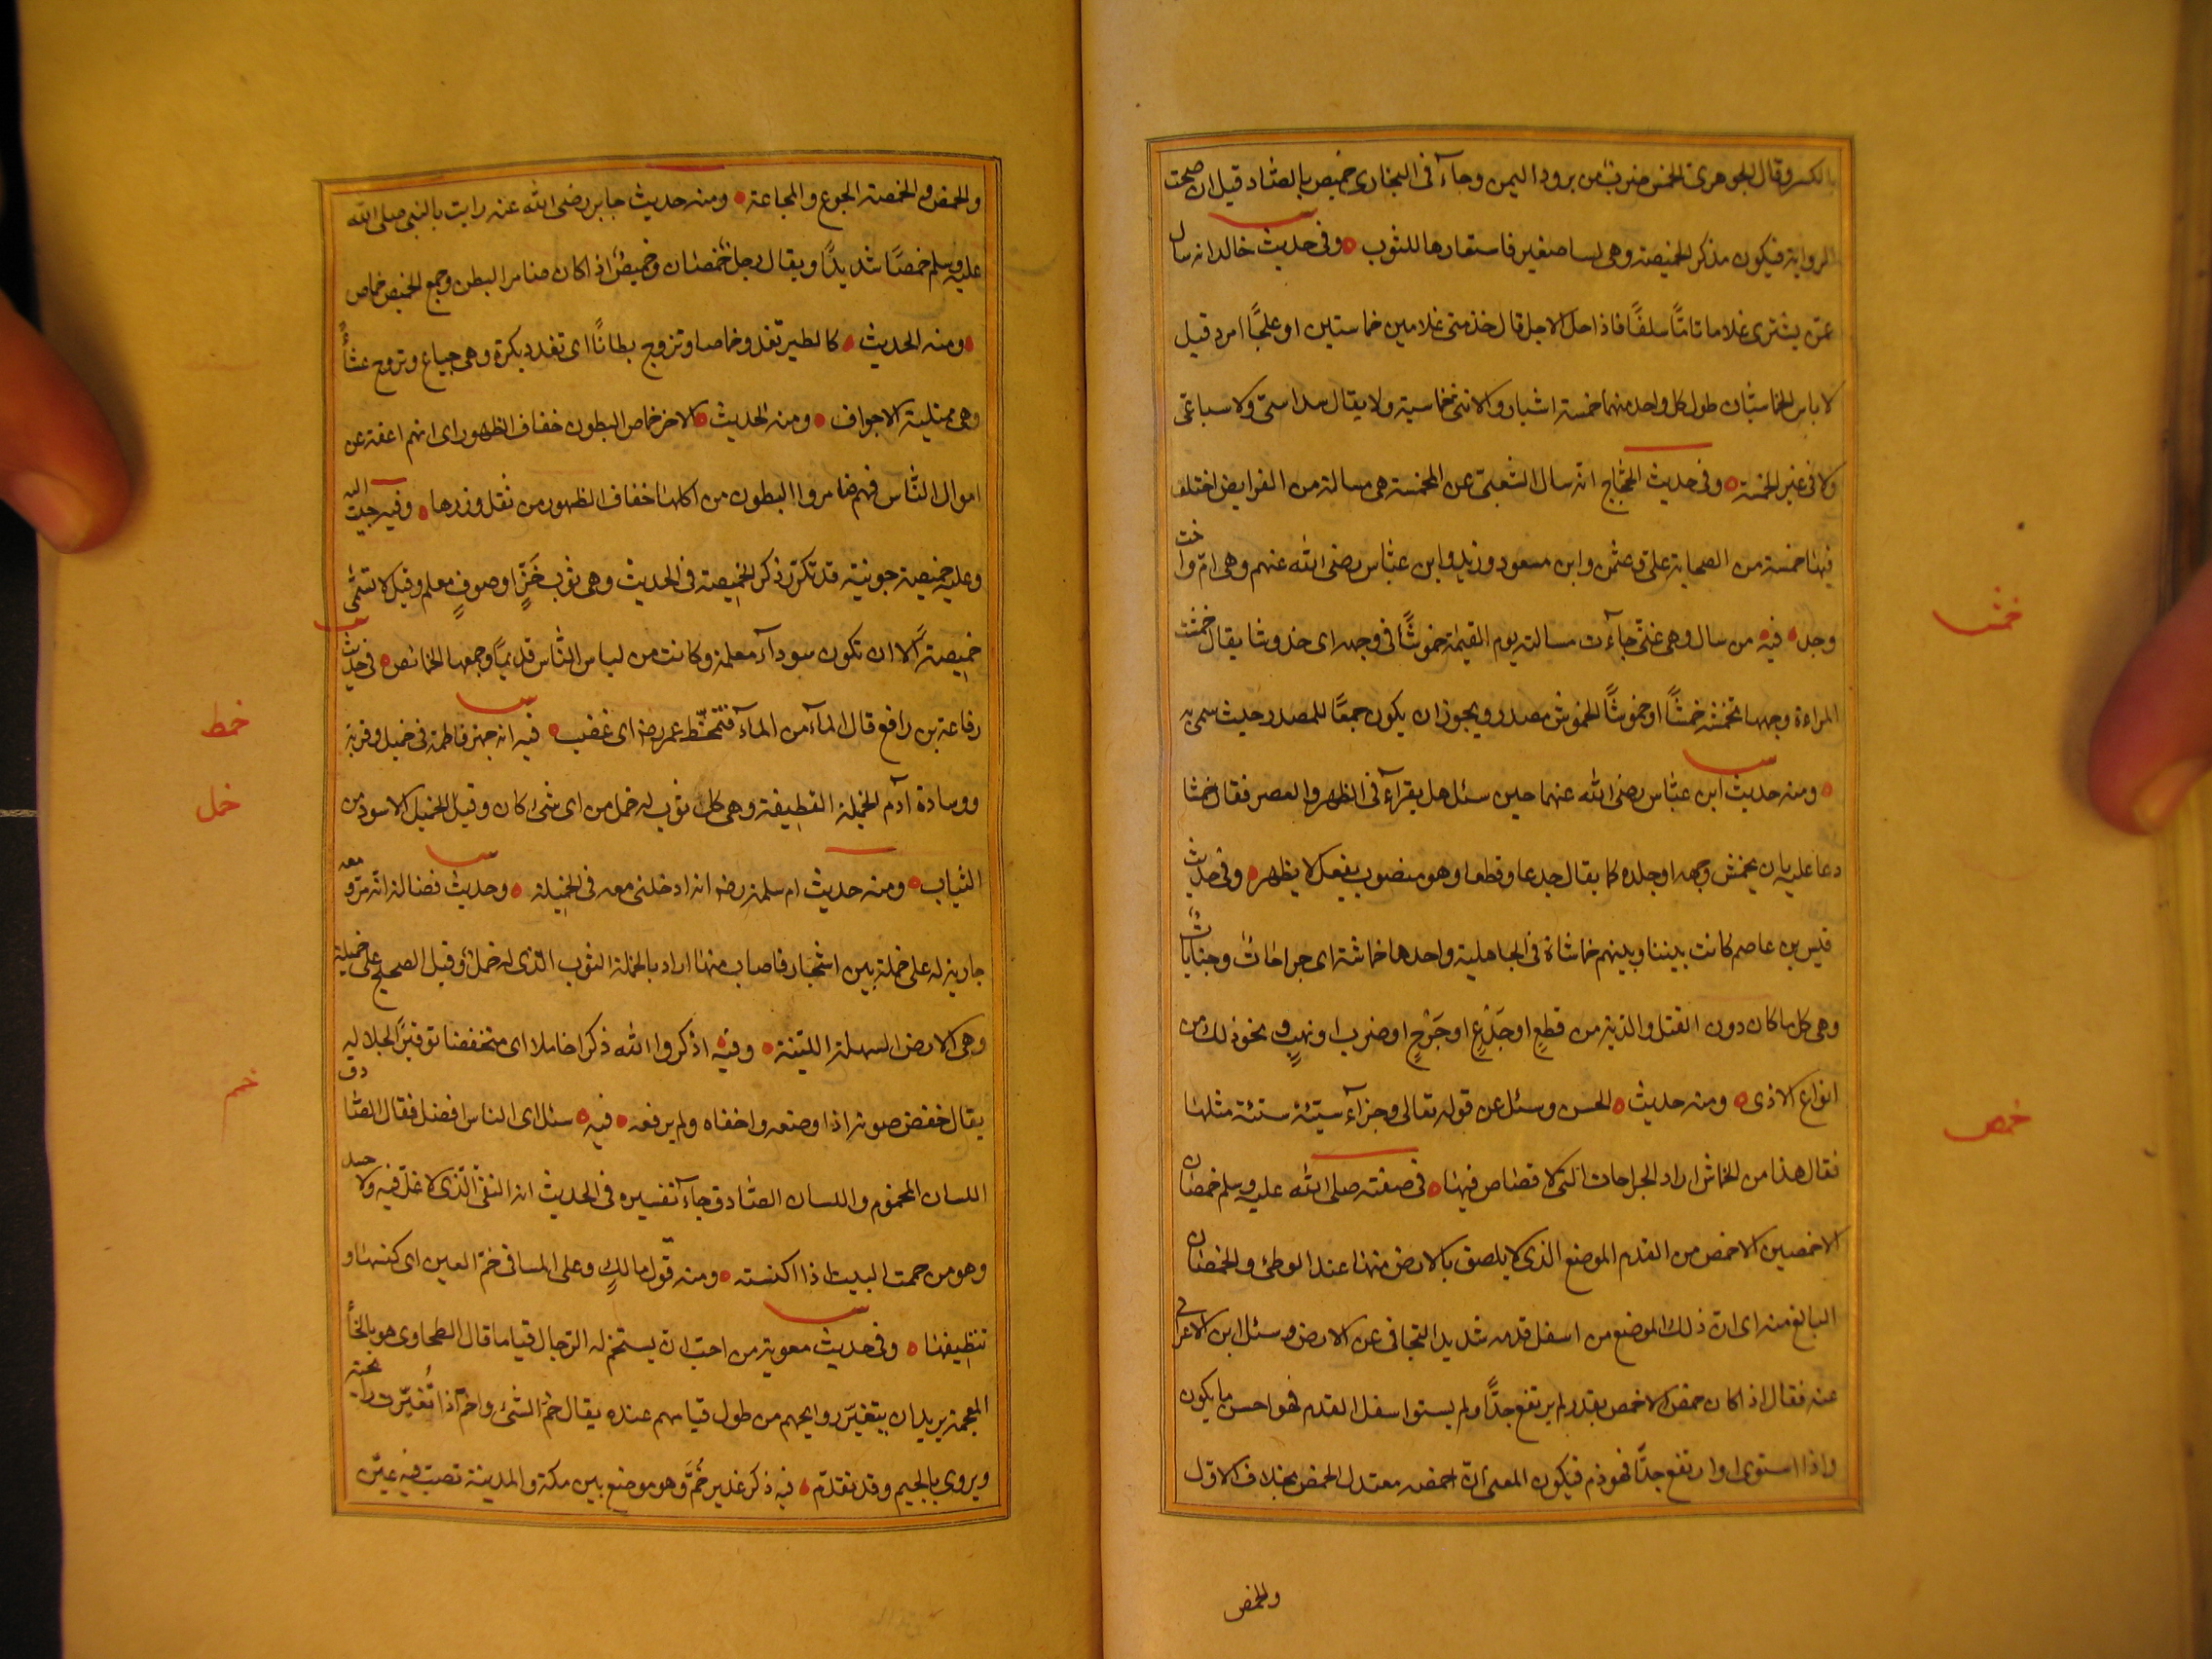 بالكسر وقال الجوهرى الخمس ضرب من برود اليمن وجاء فى البخارى خميص بالصاد قيل ان صحت
الرواية فيكون مذكر الخميصة وهى كسا صغير فاستعارها للثوب وفى حديث خالد انه سال
عمّن يشترى غلاما تامّا سلفًا فاذا حل الاجل قال خذ منى غلامين خماسيين او علجًا امرد قيل
لا باس الخماسيّان طول كل واحد منهما خمسة اشبار والانثى خماسية ولا يقال سداسىّ ولا سباعى
ولا فى غير الخمسة وفى حديث الحجّاج انه سال الشعبىّ عن المخمسة هى مسالة من الفرايض اختلف
فيها خمسة من الصحابة على وعثمن وابن مسعود وزيد وابن عبّاس رضى الله عنهم وهى ام واخت
وجد فيه من سال وهى غنىّ جاءت مسالته يوم القيمة خموشًا فى وجهه اى خدوشا يقال خمشت
المراءة وجهها تخمشه خمشًا او خموشًا الخموش مصدر ويجوز ان يكون جمعًا للمصدر حيث سمى به
ومنه حديث ابن عبّاس رضى الله عنهما حين سئل هل يقراء فى الظهر والعصر فقال خمشا
دعا عليه بان يخمش وجهه او جلده كما يقال جدعا وقطعا وهو منصوب بفعل لا يظهر وفى حديث
قيس بن عاصم كانت بيننا وبينهم خماشاة فى الجاهلية واحدها خماشة اى جراحات وجنايات
وهى كل ما كان دون القتل والدية من قطعٍ او جَدْعٍ او جَرْحٍ او ضرب او نهبٍ و نحو ذلك من
انواع الاذى ومنه حديث الحسن وسئل عن قوله تعالى وجزآء سيّئة سيّئة مثلها
فقال هذا من الخماش اراد الجراحات التى لا قصاص فيها فى صفته صلى الله عليه وسلم خمصان
الاخمصين الاخمص من القدم الموضع الذى لا يلصق بالارض منها عند الوطئ والخمصان
البالغ منه اى ان ذلك الموضع من اسفل قدمه شديد التجافى عن الارض وسئل ابن الاعرابى
عنه فقال اذا كان خمص الاخمص بقدر لم يرتفع جدًّا ولم يستوا سفل القدم فهو احسن ما يكون
واذا استوى او ارتفع جدًّا فهو ذم فيكون المعنى انّ اخمصه معتدل الخمص بخلاف الاوّل
والخمص
خمش
خمص
والخمص والخمصة الجوع والمجاعة ومنه حديث جابر رضى الله عنه رايت بالنبى صلى الله
عليه وسلم خمصًا شديدًا ويقال رجل خمصان وخميصٌ اذا كان ضامر البطن وجمع الخميص خماص
ومنه الحديث كالطير تغدو خماصا وتروح بطانًا اى تغدو بكرة وهى جياع وتروح عشاءً
وهى ممتلية الاجواف ومنه الحديث الاخر خماص البطون خفاف الظهور اى انهم اعفة عن
اموال النّاس فهم ضامروا البطون من اكلها خفاف الظهور من ثقل وزرها وفيه جيت اليه
وعليه خميصة جونية قد تكرّر ذكر الخميصة فى الحديث وهى ثوب خَزٍّ او صوفٍ معلم وقيل لا تسمّى
خميصةً الا ان تكون سودآء معلمة وكانت من لباس النّاس قديمًا وجمعها الخمائص فى حديث
رفاعة بن رافع قال المآء من المآء فتخمّط عمر رضه اى غضب فيه انه جهز فاطمة فى خميل وقربة
ووسادة آدم الخميلة القطيفة وهى كل ثوب له خمل من اى شىء كان وقيل الخميل الاسود من
الثياب ومنه حديث ام سلمة رضه انه ادخلنى معه فى الخميلة وحديث فضالة انه مرّ ومعه
جارية له على خملة بين اشجار فاصاب منها اراد بالخملة الثوب الذى له خمل وقيل الصحيح على خميلة
وهى الارض السهلة الليّنة وفيه اذكروا الله ذكرا خاملا اى منخفضا توقيرًا لجلاله
يقال خفض صوته اذا وضعه واخفاه ولم يرفعه فيه سئل اى الناس افضل فقال الصّادق
اللسان المخموم واللسان الصّادق جاء تفسيره فى الحديث انه النقىّ الّذى لا غلّ فيه ولا حسد
وهو من خممت البيت اذا اكنسته ومنه قول مالكٍ وعلى المساقى خمّ العين اى كنسها و
تنظيفها وفى حديث معوية من احبّ ان يستخمّ له الرّجال قياما قال الطحاوى هو بالخاء
المعجمة يريد ان يتغيّر روايحهم من طول قيامهم عنده يقال خمّ الشىء واخمّ اذا تُغيّرت رايحته
ويروى بالجيم وقد تقدّم فيه ذكر غدير خُمّ وهو موضع بين مكة والمدينة تصب فيه عين
خمط
خمل
خم